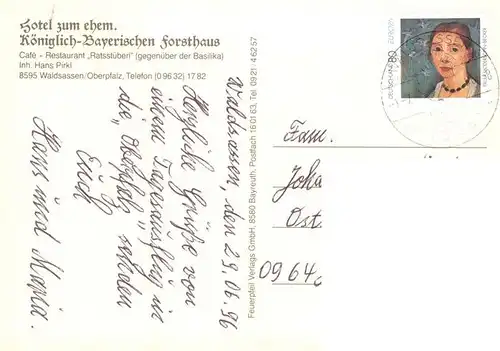 Hotel zum ehem.
Königlich-Bayerischen Forsthaus
Café - Restaurant „Ratsstüberl" (gegenüber der Basilika)
Inh. Hans Pirkl
8595 Waldsassen/Oberpfalz, Telefon (0 96 32) 17 82
Waldsassen, den 29.06.96
Herzliche Grüße von
einem Tagesausflug in
die „Oberpfalz" senden
Euch
Hans und Maria.
Feuerpfeil Verlags GmbH, 8580 Bayreuth, Postfach 16 01 63, Tel. 09 21 - 4 62 57
80
EUROPA
Fam.
Joha
Ost.
0964